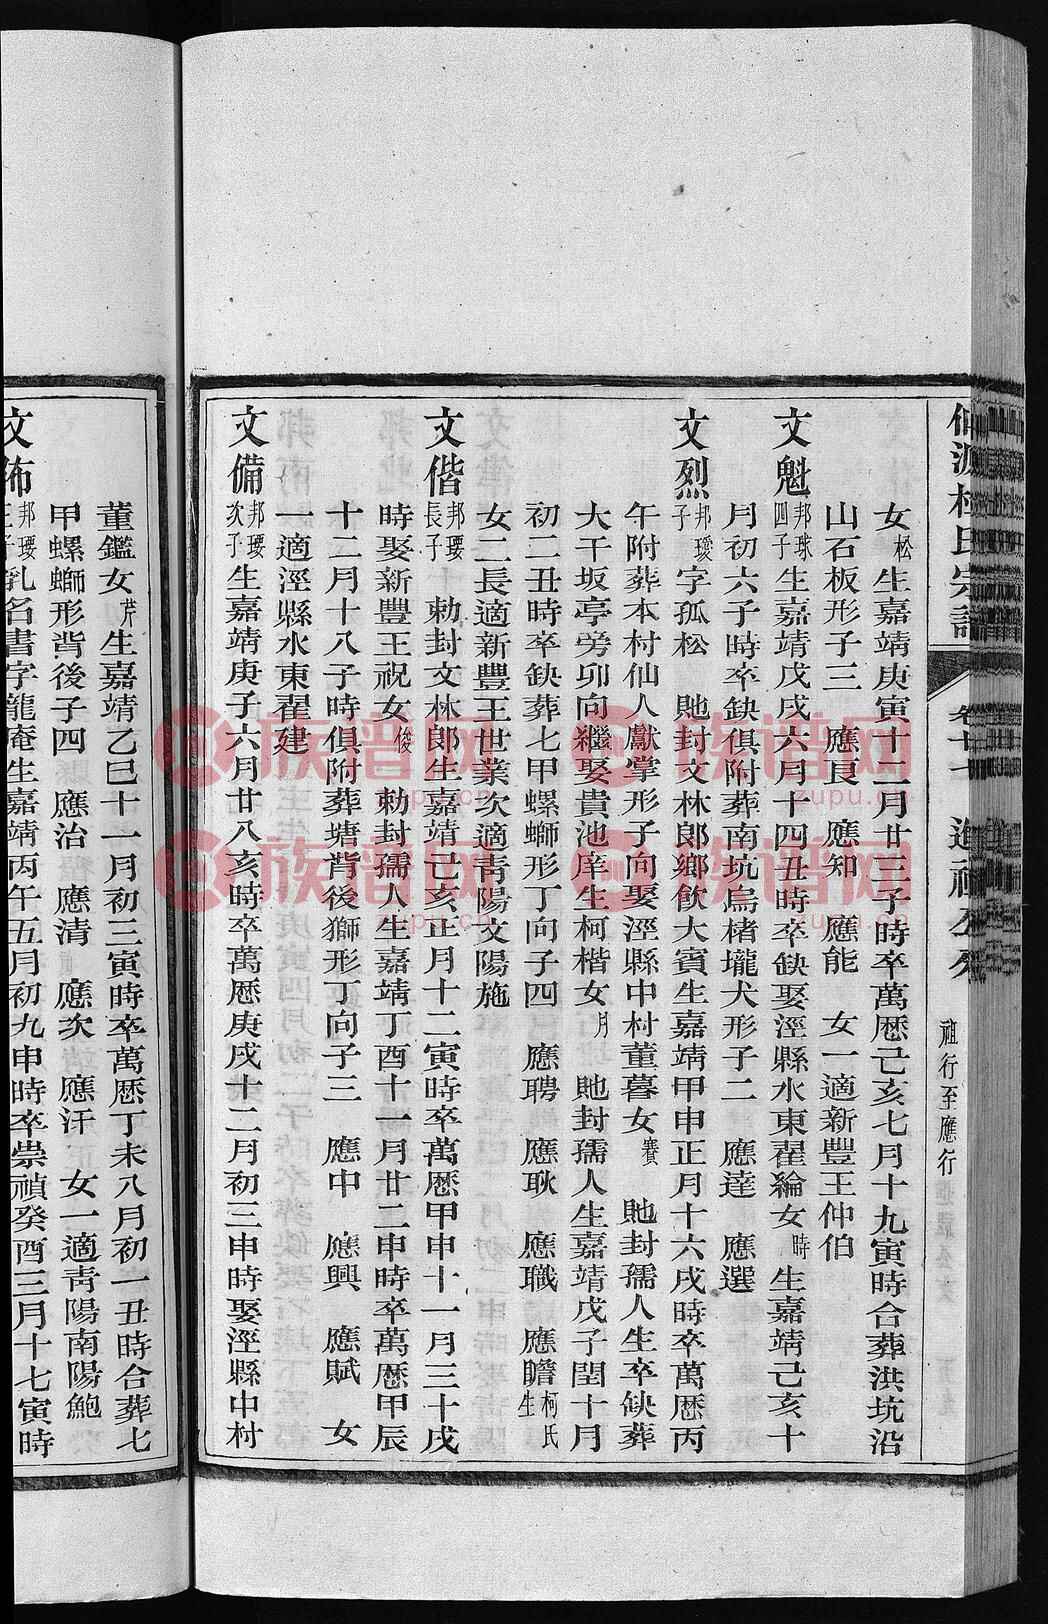 仙源杜氏宗譜 卷十七 進祖公分 祖行至應行
女松生嘉靖庚寅十二月廿三子時卒萬厯己亥七月十九寅時合葬洪坑沿
山石板形子三 應良 應知 應能 女一適新豐王仲伯
文魁邦珠四子生嘉靖戊戌六月十四丑時卒缺娶涇縣水東翟綸女時生嘉靖己亥十
月初六子時卒缺俱附葬南坑烏楮壠犬形子二 應達 應選
文烈邦瓊子字孤松 貤封文林郎鄉飲大賓生嘉靖甲申正月十六戌時卒萬厯丙
午附葬本村仙人獻掌形子向娶涇縣中村董暮女賽 貤封孺人生卒缺葬
大干坂亭旁卯向繼娶貴池庠生柯楷女月 貤封孺人生嘉靖戊子閏十月
初二丑時卒缺葬七甲螺螄形丁向子四 應聘 應耿 應職 應瞻柯氏生
女二長適新豐王世業次適青陽文陽施
文偕邦瓔長子 勅封文林郎生嘉靖己亥正月十二寅時卒萬厯甲申十一月三十戌
時娶新豐王祝女俊 勅封孺人生嘉靖丁酉十一月廿二申時卒萬厯甲辰
十二月十八子時俱附葬塘背後獅形丁向子三 應中 應興 應賦 女
一適涇縣水東翟建
文備邦瓔次子生嘉靖庚子六月廿八亥時卒萬厯庚戌十二月初三申時娶涇縣中村
董鑑女芹生嘉靖乙巳十一月初三寅時卒萬厯丁未八月初一丑時合葬七
甲螺螄形背後子四 應治 應清 應次 應汗 女一適靑陽南陽鮑
文佈邦瓔三子乳名書字龍庵生嘉靖丙午五月初九申時卒崇禎癸酉三月十七寅時
族谱网
zupu.cn
族谱网
zupu.cn
族谱网
zupu.cn
族谱网
zupu.cn